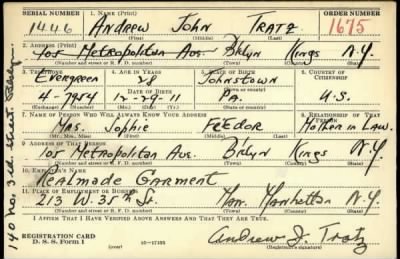 SERIAL NUMBER 1. NAME (Print) ORDER NUMBER
1446 ANDREW JOHN TRATZ 1675
(First) (Middle) (Last)
2. ADDRESS (Print)
105 Metropolitan Ave. Bklyn Kings N.Y.
(Number and street or R. F. D. number) (Town) (County) (State)
3. TELEPHONE 4. AGE IN YEARS 5. PLACE OF BIRTH 6. COUNTRY OF CITIZENSHIP
Evergreen 28 Johnstown
DATE OF BIRTH
4-7954 12-29-11 Pa. U.S.
(Exchange) (Number) (Mo.) (Day) (Yr.) (State or country)
7. NAME OF PERSON WHO WILL ALWAYS KNOW YOUR ADDRESS 8. RELATIONSHIP OF THAT PERSON
Mrs. Sophie FEEdor Mother in Law.
(Mr., Mrs., Miss) (First) (Middle) (Last)
9. ADDRESS OF THAT PERSON
105 Metropolitan Ave. Bklyn Kings N.Y.
(Number and street or R. F. D. number) (Town) (County) (State)
10. EMPLOYER'S NAME
Realmade Garment
11. PLACE OF EMPLOYMENT OR BUSINESS
213 W. 35th St. Man. Manhattan N.Y.
(Number and street or R. F. D. number) (Town) (County) (State)
I AFFIRM THAT I HAVE VERIFIED ABOVE ANSWERS AND THAT THEY ARE TRUE.
REGISTRATION CARD
D. S. S. Form 1 (over) 16—17105 Andrew J. Tratz
(Registrant's signature)
140 No. 3rd Street